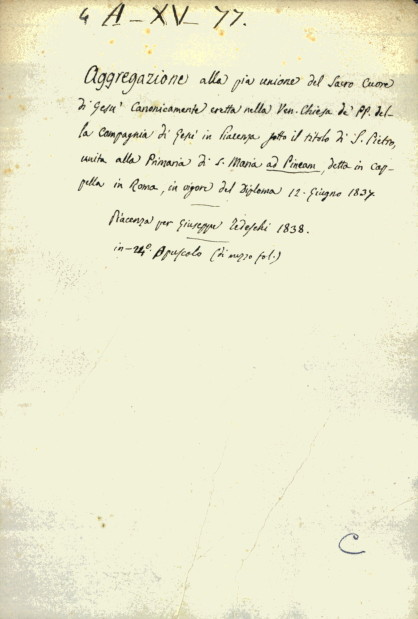 4 A-XV-77.
Aggregazione alla pia unione del Sacro Cuore
di Gesu' Canonicamente eretta nella Ven. Chiesa de' PP. del-
la Compagnia di Gesù in Piacenza sotto il titolo di S. Pietro,
unita alla Primaria di S. Maria ad Pineam, detta in cap-
pella in Roma, in vigore del Diploma 12. Giugno 1837.
Piacenza per Giuseppe Tedeschi 1838.
in-24º. Opuscolo (di mezzo fol.)
C